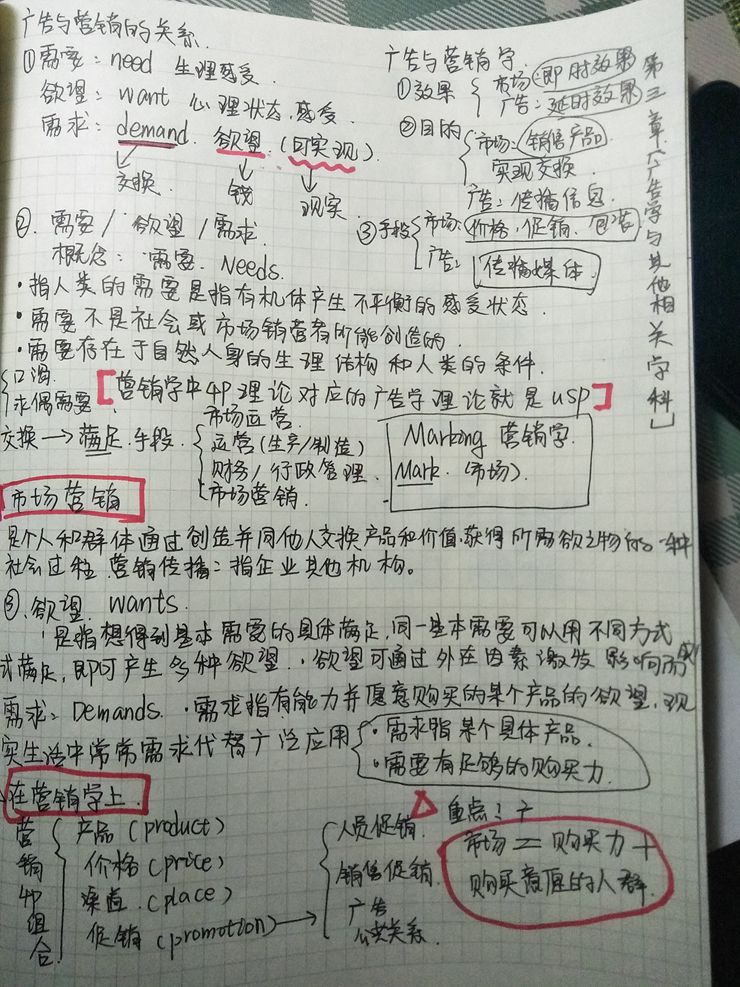 广告与营销的关系.
①需要：need 生理感受.
欲望：want 心理状态.感受.
需求：demand. 欲望.(可实现).
交换. 钱 现实.
广告与营销学.
①效果 市场:即时效果
广告:延时效果
②目的 市场:销售产品
实现交换.
广告:传播信息.
③手段 市场:价格.促销.包装.
广告: 传播媒体.
第三章《广告学与其他相关学科》
②. 需要/欲望/需求.
概念: 需要. Needs.
·指人类的需要是指有机体产生不平衡的感受状态.
·需要不是社会或市场销营者所能创造的.
·需要存在于自然人身的生理结构和人类的条件.
口渴.
求偶需要.
[营销学中4P理论对应的广告学理论就是USP]
交换→满足.手段.
市场运营.
运营(生产/制造)
财务/行政管理.
市场营销.
Marking 营销学.
Mark.(市场).
市场营销
是个人和群体通过创造并同他人交换产品和价值.获得所需欲之物的一种
社会过程.营销传播:指企业其他机构。
③.欲望. wants.
是指想得到基本需要的具体满足,同一基本需要可以用不同方式
式满足,即可产生多种欲望.·欲望可通过外在因素激发影响
需求: Demands. ·需求指有能力并愿意购买的某个产品的欲望.现
实生活中常常需求代替广泛应用
·需求指某个具体产品.
·需要有足够的购买力.
在营销学上.
营销4P组合
产品(product)
价格(price)
渠道.(place)
促销(promotion)→
人员促销.
销售促销.
广告
公共关系.
重点:
市场=购买力+
购买意愿的人群.